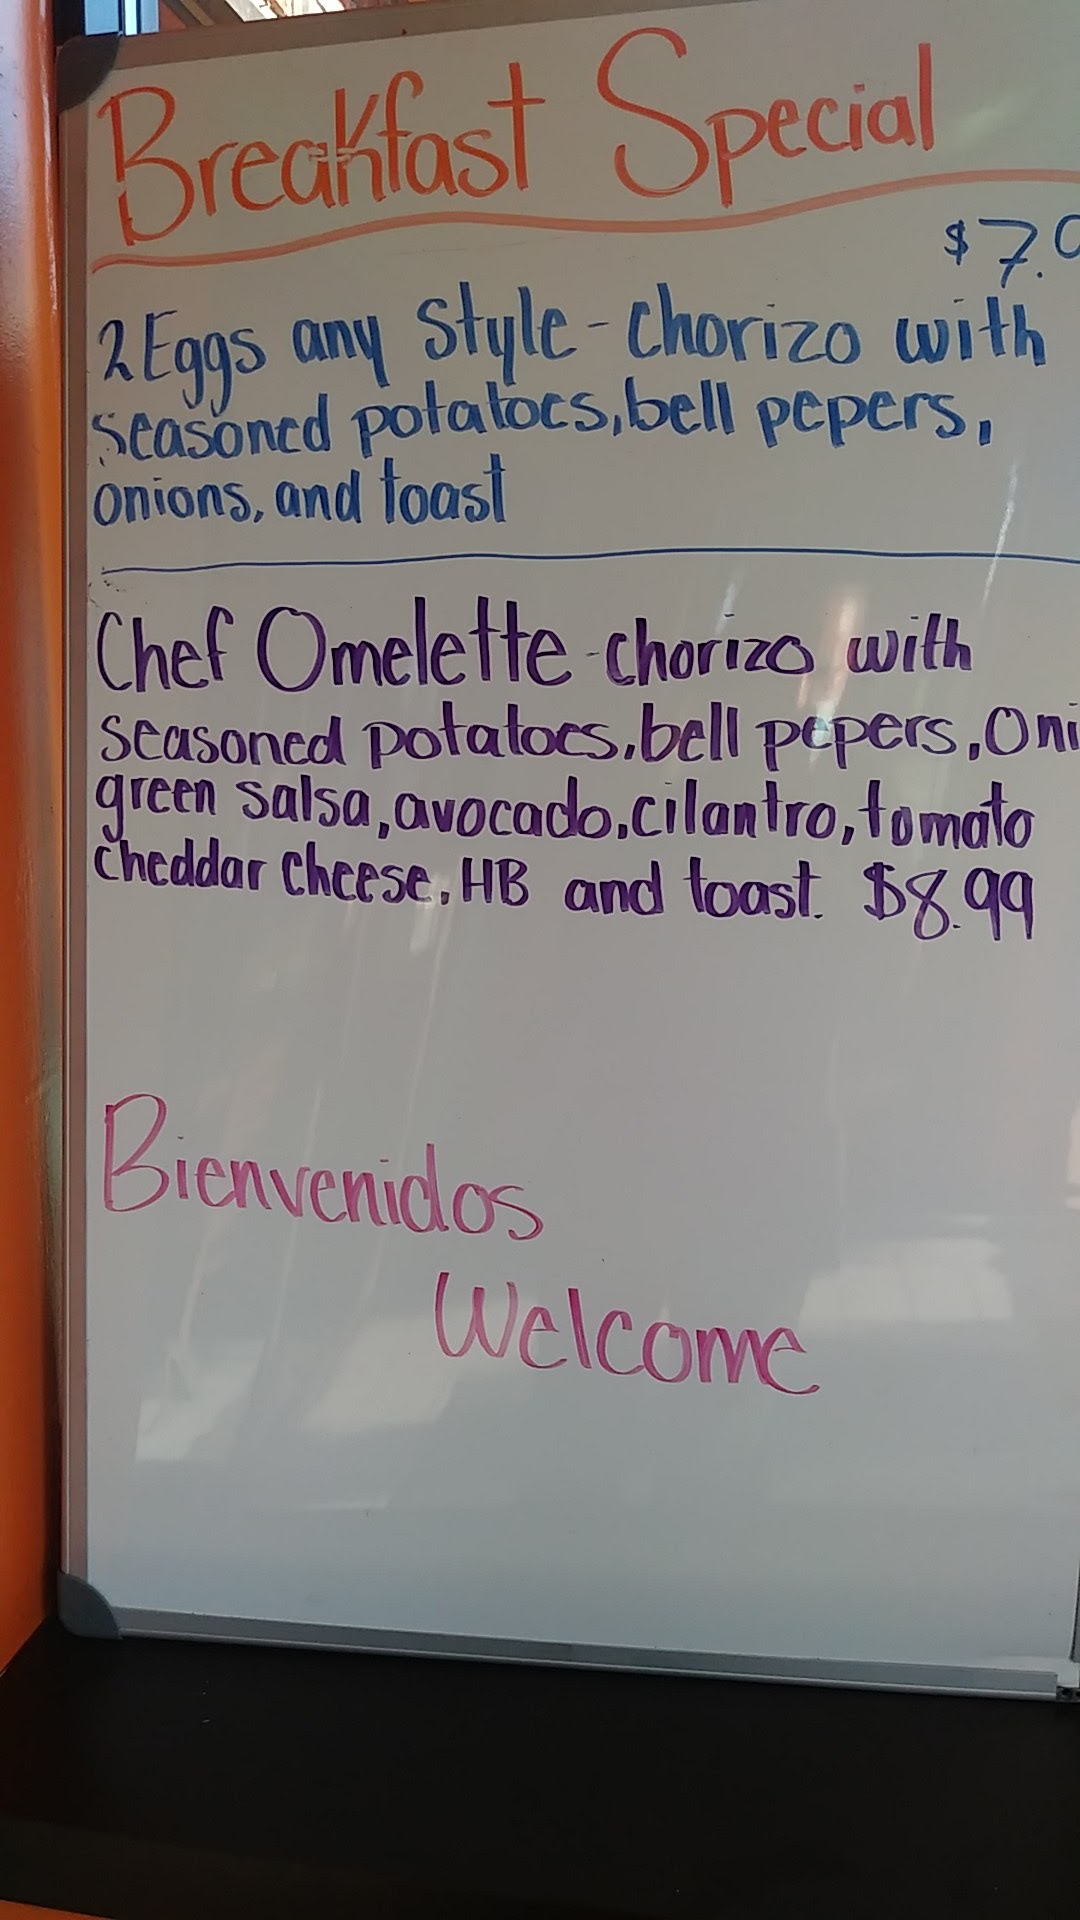 Breakfast Special
$7.
2 Eggs any Style - Chorizo with
seasoned potatoes, bell pepers,
onions, and toast
Chef Omelette - chorizo with
seasoned potatoes, bell pepers, Oni
green salsa, avocado, cilantro, tomato
cheddar cheese, HB and toast. $8.99
Bienvenidos
Welcome